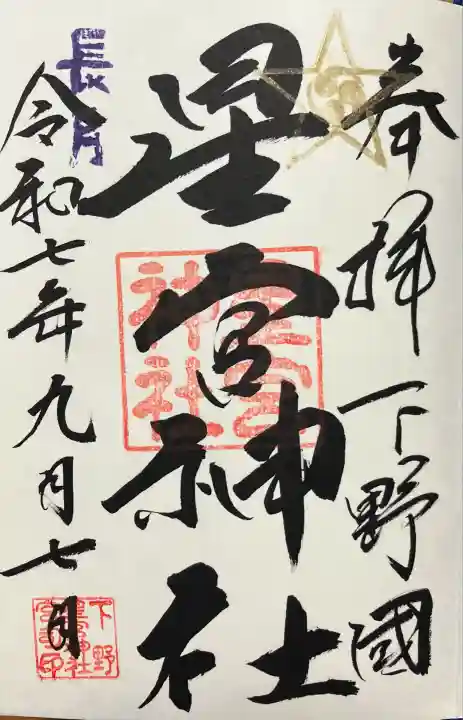 奉拝 下野國
星宮神社
長月
令和七年九月七日
星宮
神社
下野
星宮神社
宮司印